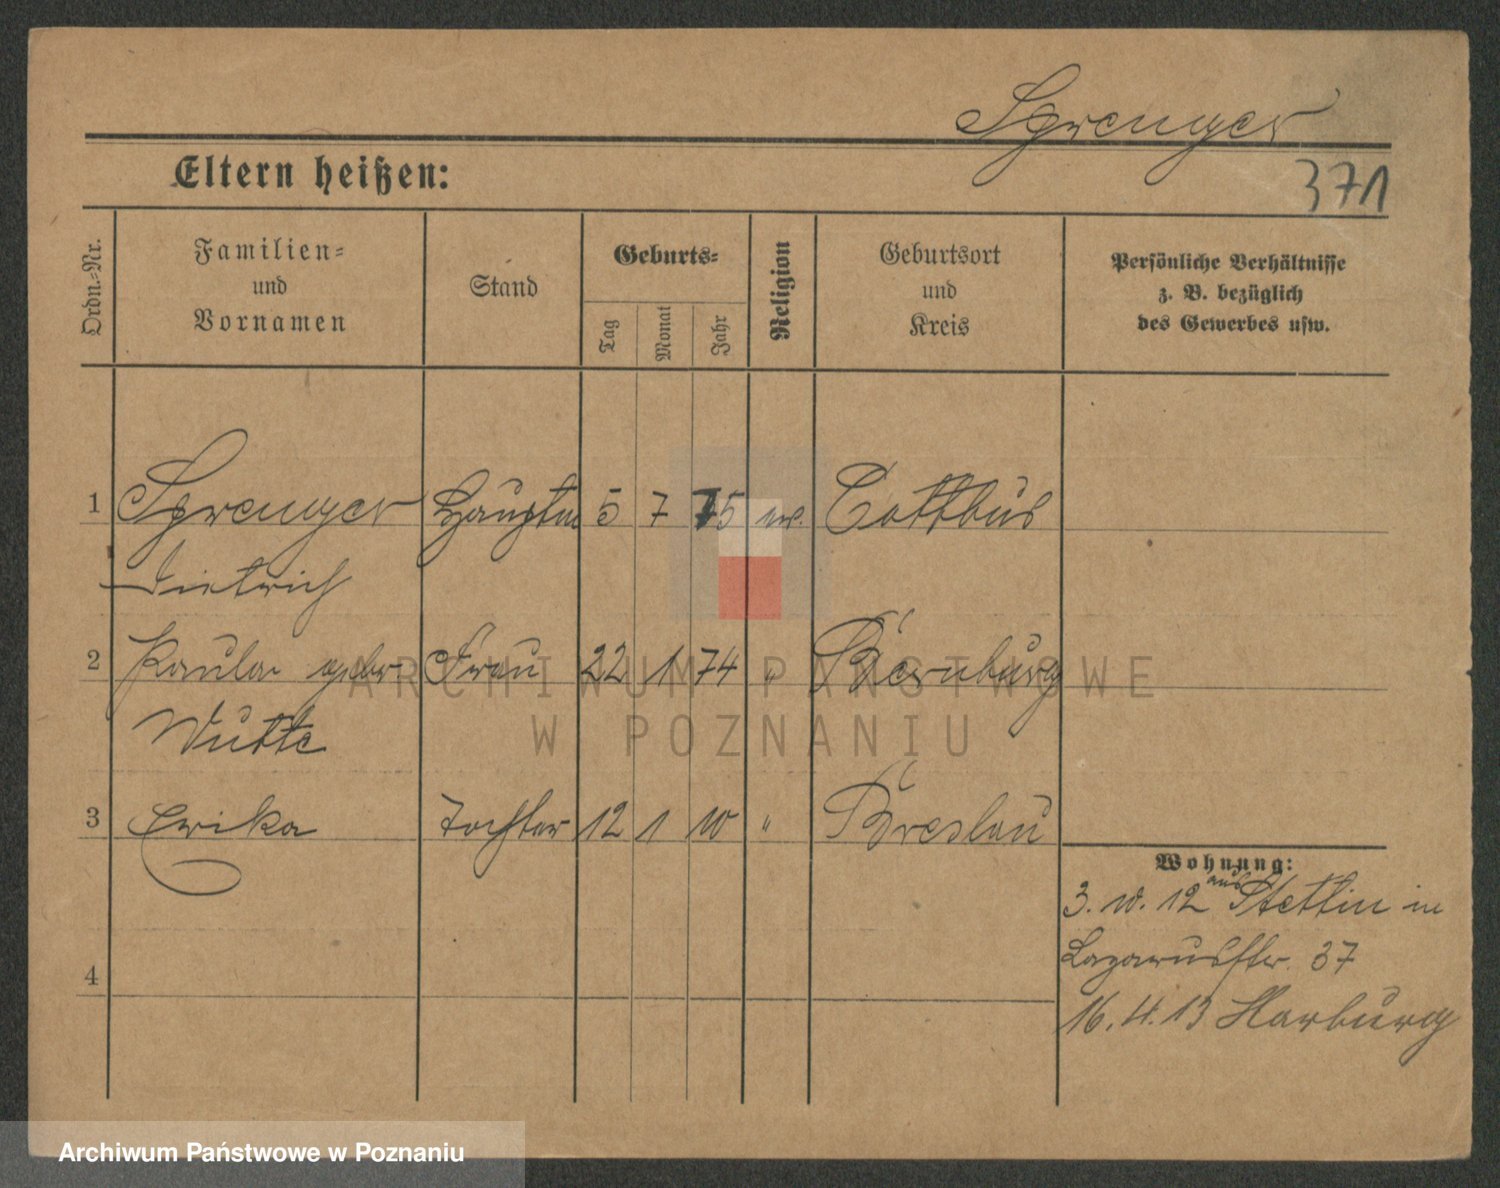 Sprenger
Eltern heißen:
371
Ordn.-Nr.
Familien-
und
Vornamen
Stand
Geburts-
Tag
Monat
Jahr
Religion
Geburtsort
und
Kreis
Persönliche Verhältnisse
z. B. bezüglich
des Gewerbes usw.
1 Sprenger Hauptm 5 7 75 ev. Cottbus
Dietrich
2 Paula geb. Frau 22 1 74 " Bernburg
Wutte
3 Erika Tochter 12 1 10 " Breslau
Wohnung:
3. 10. 12 aus Stettin in
Lazarusstr. 37
4
16. 4. 13 Harburg
ARCHIWUM PAŃSTWOWE
W POZNANIU
Archiwum Państwowe w Poznaniu